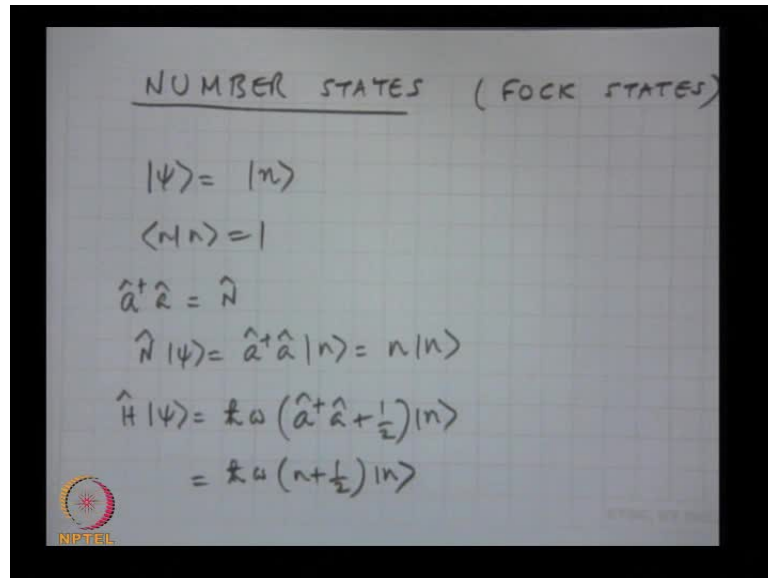 NUMBER STATES (FOCK STATES)
|ψ⟩ = |n⟩
⟨n|n⟩ = 1
â†â = N̂
N̂|ψ⟩ = â†â|n⟩ = n|n⟩
Ĥ|ψ⟩ = ℏω(â†â + 1/2)|n⟩
= ℏω(n + 1/2)|n⟩
NPTEL